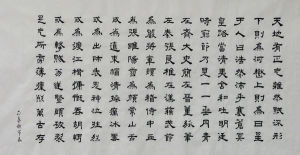 天地有正氣雜然賦流形
下則為河嶽上則為日星
於人曰浩然沛乎塞蒼冥
皇路當清夷含和吐明庭
時窮節乃見一一垂丹青
在齊太史簡在晉董狐筆
在秦張良椎在漢蘇武節
為嚴將軍頭為嵇侍中血
為張睢陽齒為顏常山舌
或為遼東帽清操厲冰雪
或為出師表鬼神泣壯烈
或為渡江楫慷慨吞胡羯
或為擊賊笏逆豎頭破裂
是氣所磅礴凜烈萬古存